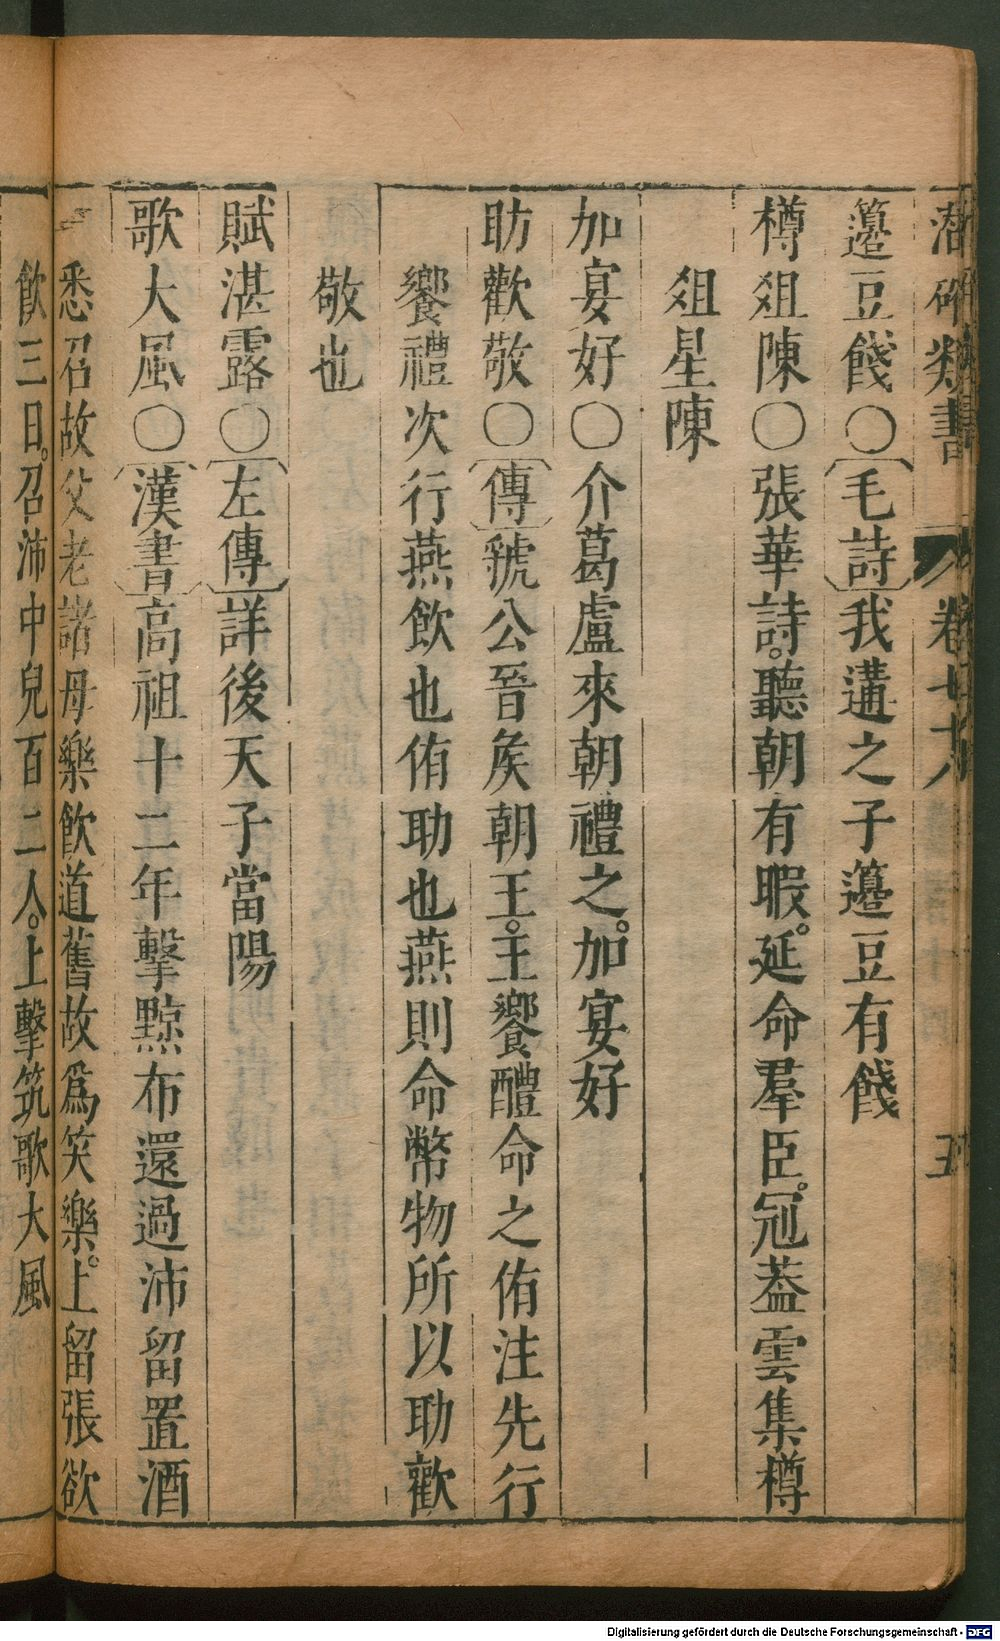 潛確類書 卷七十八 五
籩豆餞○毛詩我遘之子籩豆有餞
樽俎陳○張華詩。聽朝有暇。延命羣臣。冠葢雲集樽
俎星陳
加宴好○介葛盧來朝禮之。加宴好
助歡敬○傳虢公晉矦朝王。王饗醴命之侑注先行
饗禮次行燕飲也侑助也燕則命幣物所以助歡
敬也
賦湛露○左傳詳後天子當陽
歌大風○漢書高祖十二年擊黥布還過沛留置酒
悉召故父老諸母樂飲道舊故爲笑樂。上留張欲
飲三日。召沛中兒百二人。上擊筑歌大風
Digitalisierung gefördert durch die Deutsche Forschungsgemeinschaft - DFG